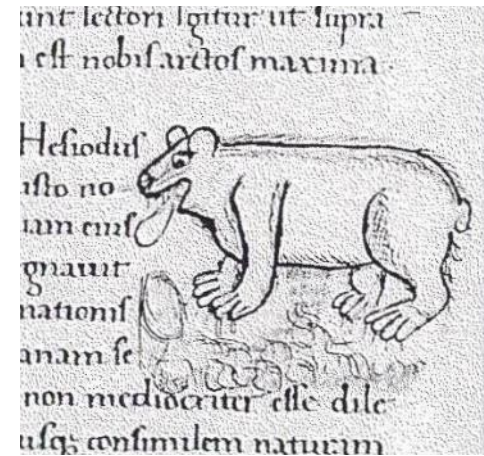 lectori Igitur ut supra
est nobis arctos maxima.
Hesiodus
no
eius
nationis
se
non mediocriter esse dile
consimilem naturam